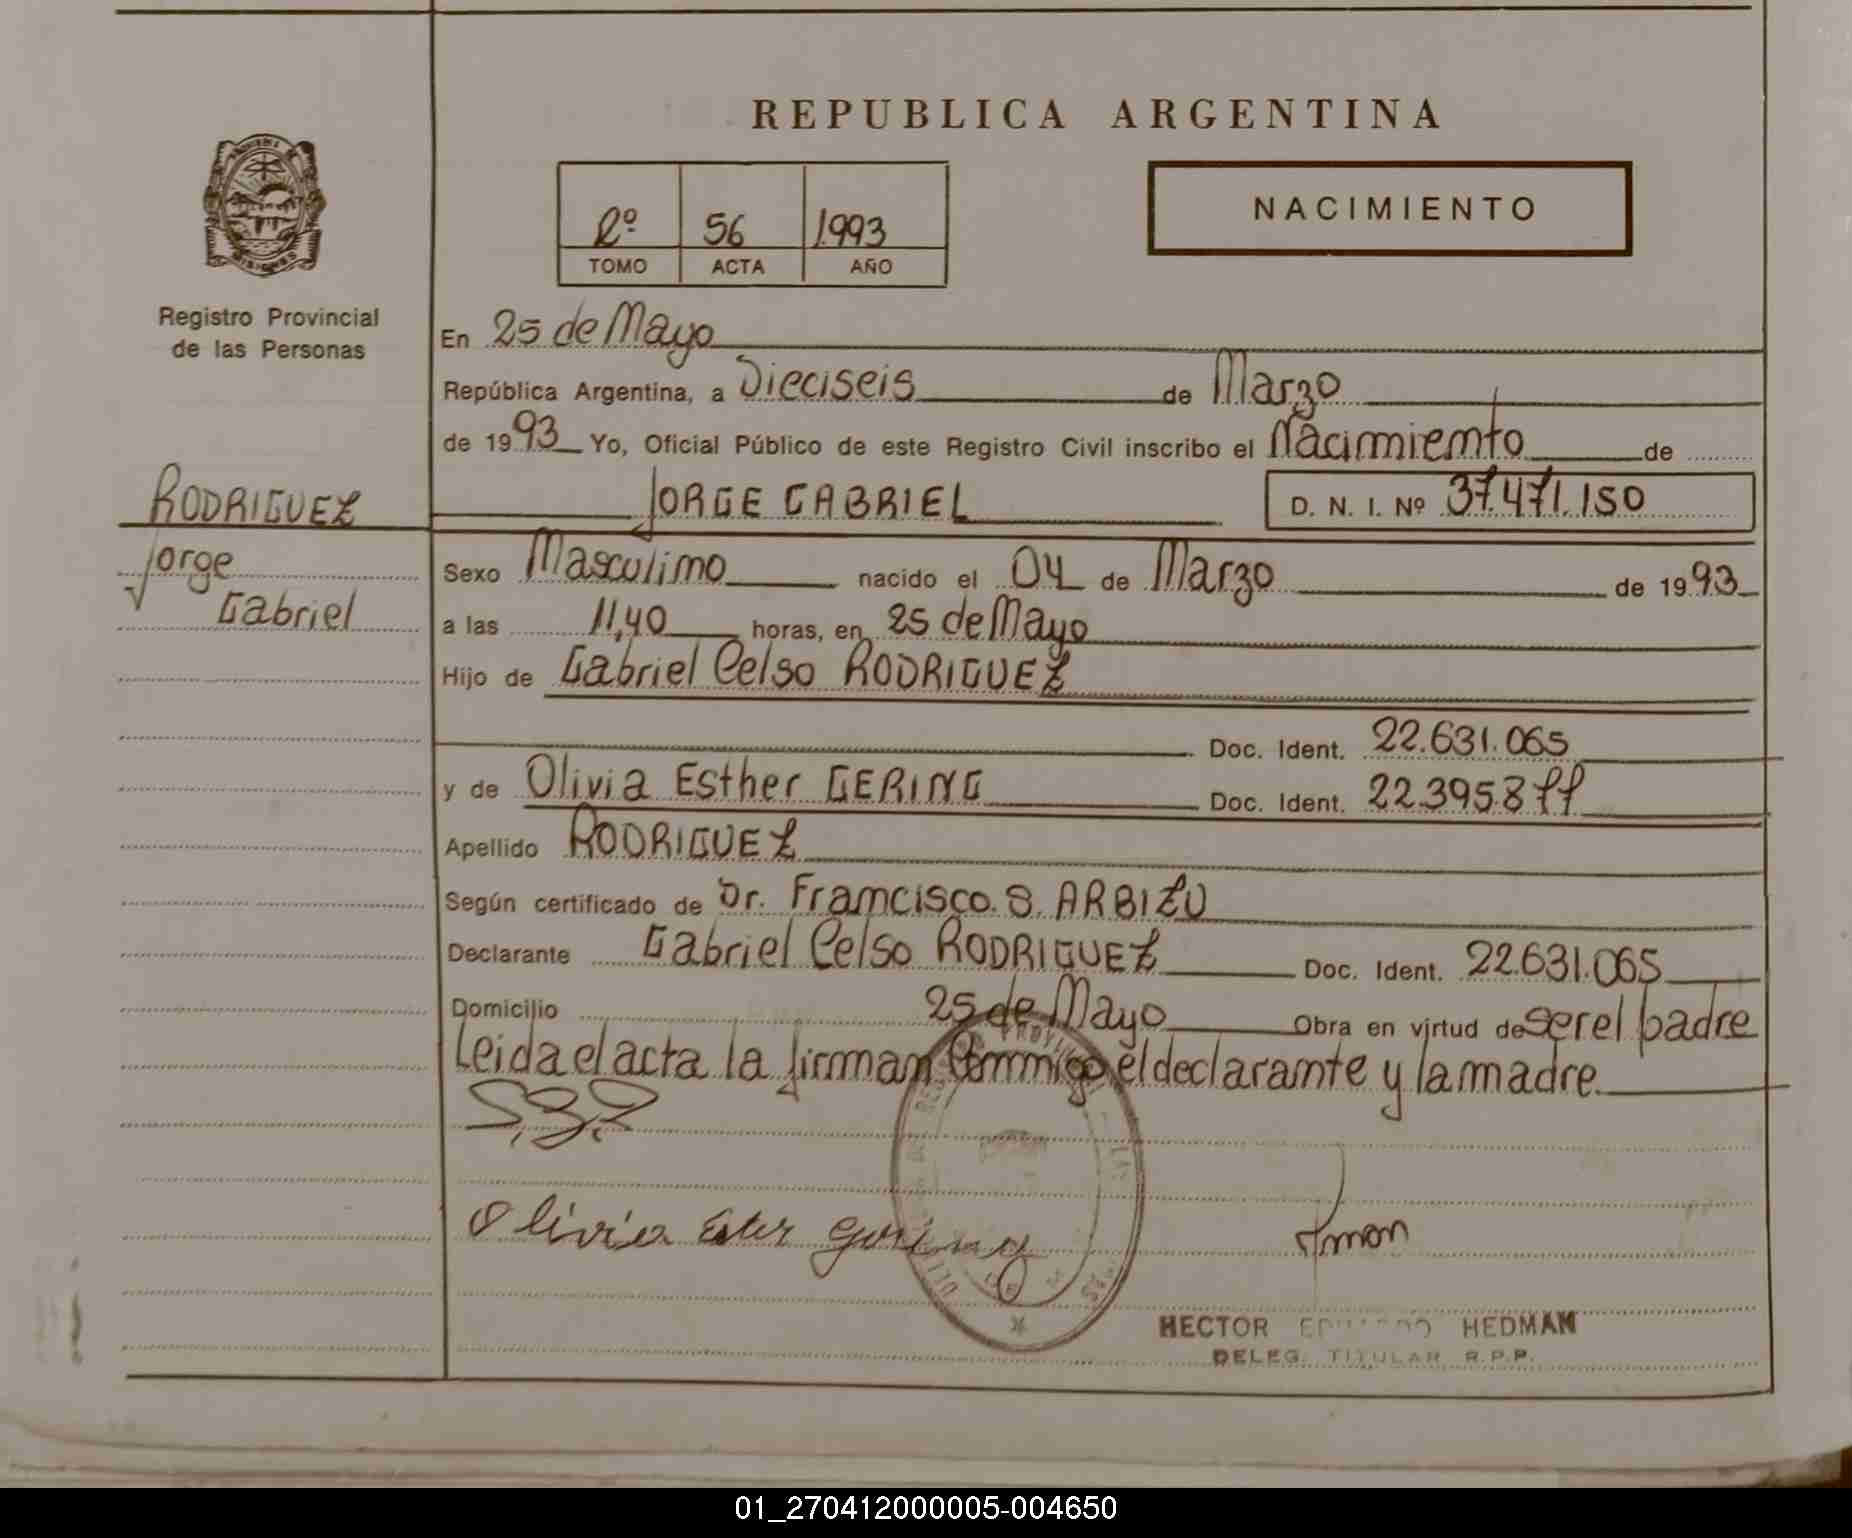 REPUBLICA ARGENTINA
NACIMIENTO
2º 56 1993
TOMO ACTA AÑO
Registro Provincial
de las Personas
En 25 de Mayo
República Argentina, a Dieciseis de Marzo
de 1993 Yo, Oficial Público de este Registro Civil inscribo el Nacimiento de
RODRIGUEZ
Jorge
Gabriel
JORGE GABRIEL D. N. I. Nº 37.471.150
Sexo Masculino nacido el 04 de Marzo de 1993
a las 11,40 horas, en 25 de Mayo
Hijo de Gabriel Celso RODRIGUEZ
Doc. Ident. 22.631.065
y de Olivia Esther GERING Doc. Ident. 22.395.877
Apellido RODRIGUEZ
Según certificado de Dr. Francisco. S. ARBIZU
Declarante Gabriel Celso RODRIGUEZ Doc. Ident. 22.631.065
Domicilio 25 de Mayo Obra en virtud de ser el padre
Leida el acta la firman Conmigo el declarante y la madre.
Olivia Ester Gering
HECTOR EDUARDO HEDMAN
DELEG. TITULAR R.P.P.
01_270412000005-004650